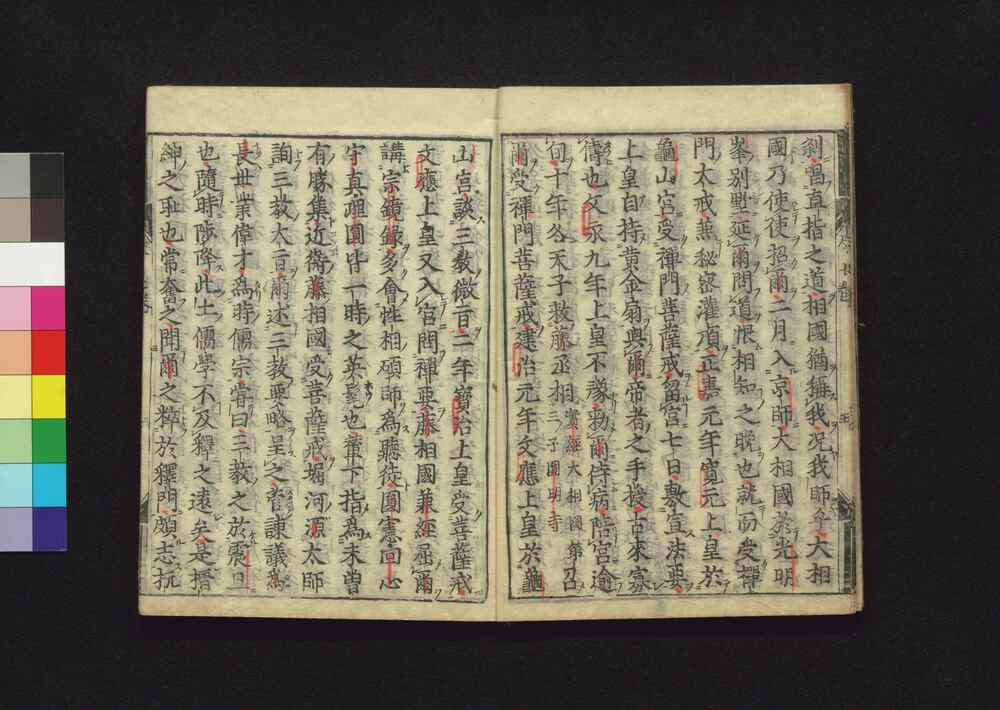 刹唱直指之道相國猶獵我況我師今大相
國乃使使招爾二月入京師大相國於光明
峯別墅延爾問道恨相知之晚也就而受禪
門大戒兼秘密灌頂正嘉元年寬元上皇於
龜山宮受禪門菩薩戒留宮七日敷宣法要
上皇自持黃金扇與爾帝者之手捨古來寡
儔也文永九年上皇不豫勅爾侍病陪宮逾
旬十年冬天子救藤丞相實經大相國第
三子圓明寺召
爾受禪門菩薩戒建治元年文應上皇於龜
山宮談三教微旨二年寶治上皇受菩薩戒
文應上皇又入宮問禪要藤相國兼經屈爾
講宗鏡錄多會性相碩師為聽徒圓憲回心
守真理圓皆一時之英髦也輩下指為未曾
有勝集近衛藤相國受菩薩戒堀河源太師
詢三教大旨爾述三教要略呈之菅諫議為
長世業偉才為時儒宗嘗曰三教之於震旦
也隨時陟降此土儒學不及釋之遠矣是搢
紳之恥也常奮之聞爾之粹於釋門頗志抗